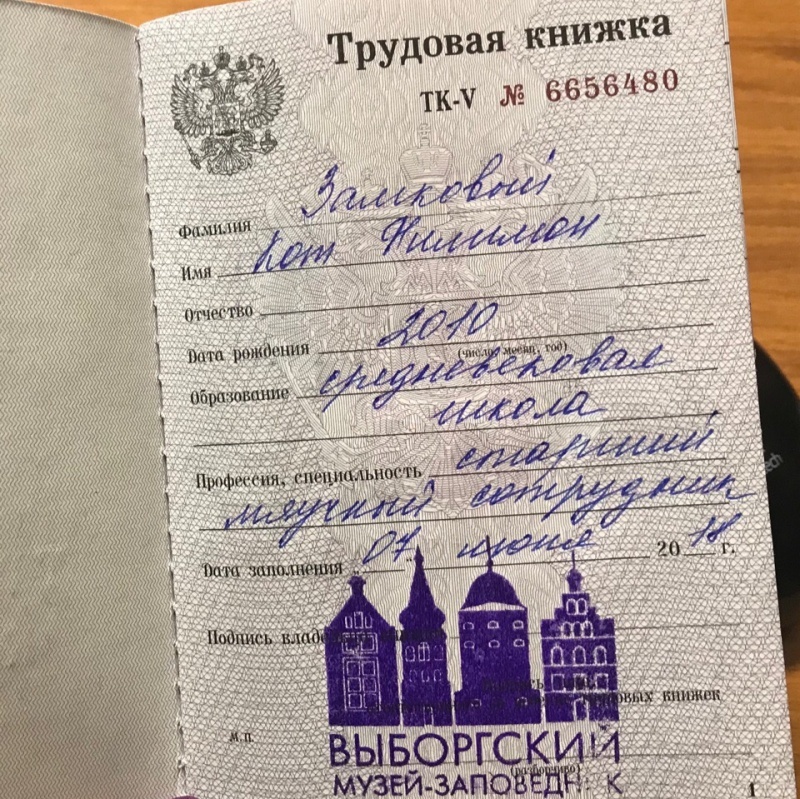 Трудовая книжка
ТК-V № 6656480
Фамилия Замковый
Имя Кот Филимон
Отчество
Дата рождения 2010
(число, месяц, год)
Образование средневековая
школа
Профессия, специальность старший
мяучный сотрудник
Дата заполнения 07 июня 2018 г.
Подпись
трудовых книжек
м.п.
ВЫБОРГСКИЙ
(разборчиво)
МУЗЕЙ-ЗАПОВЕДНИК
1